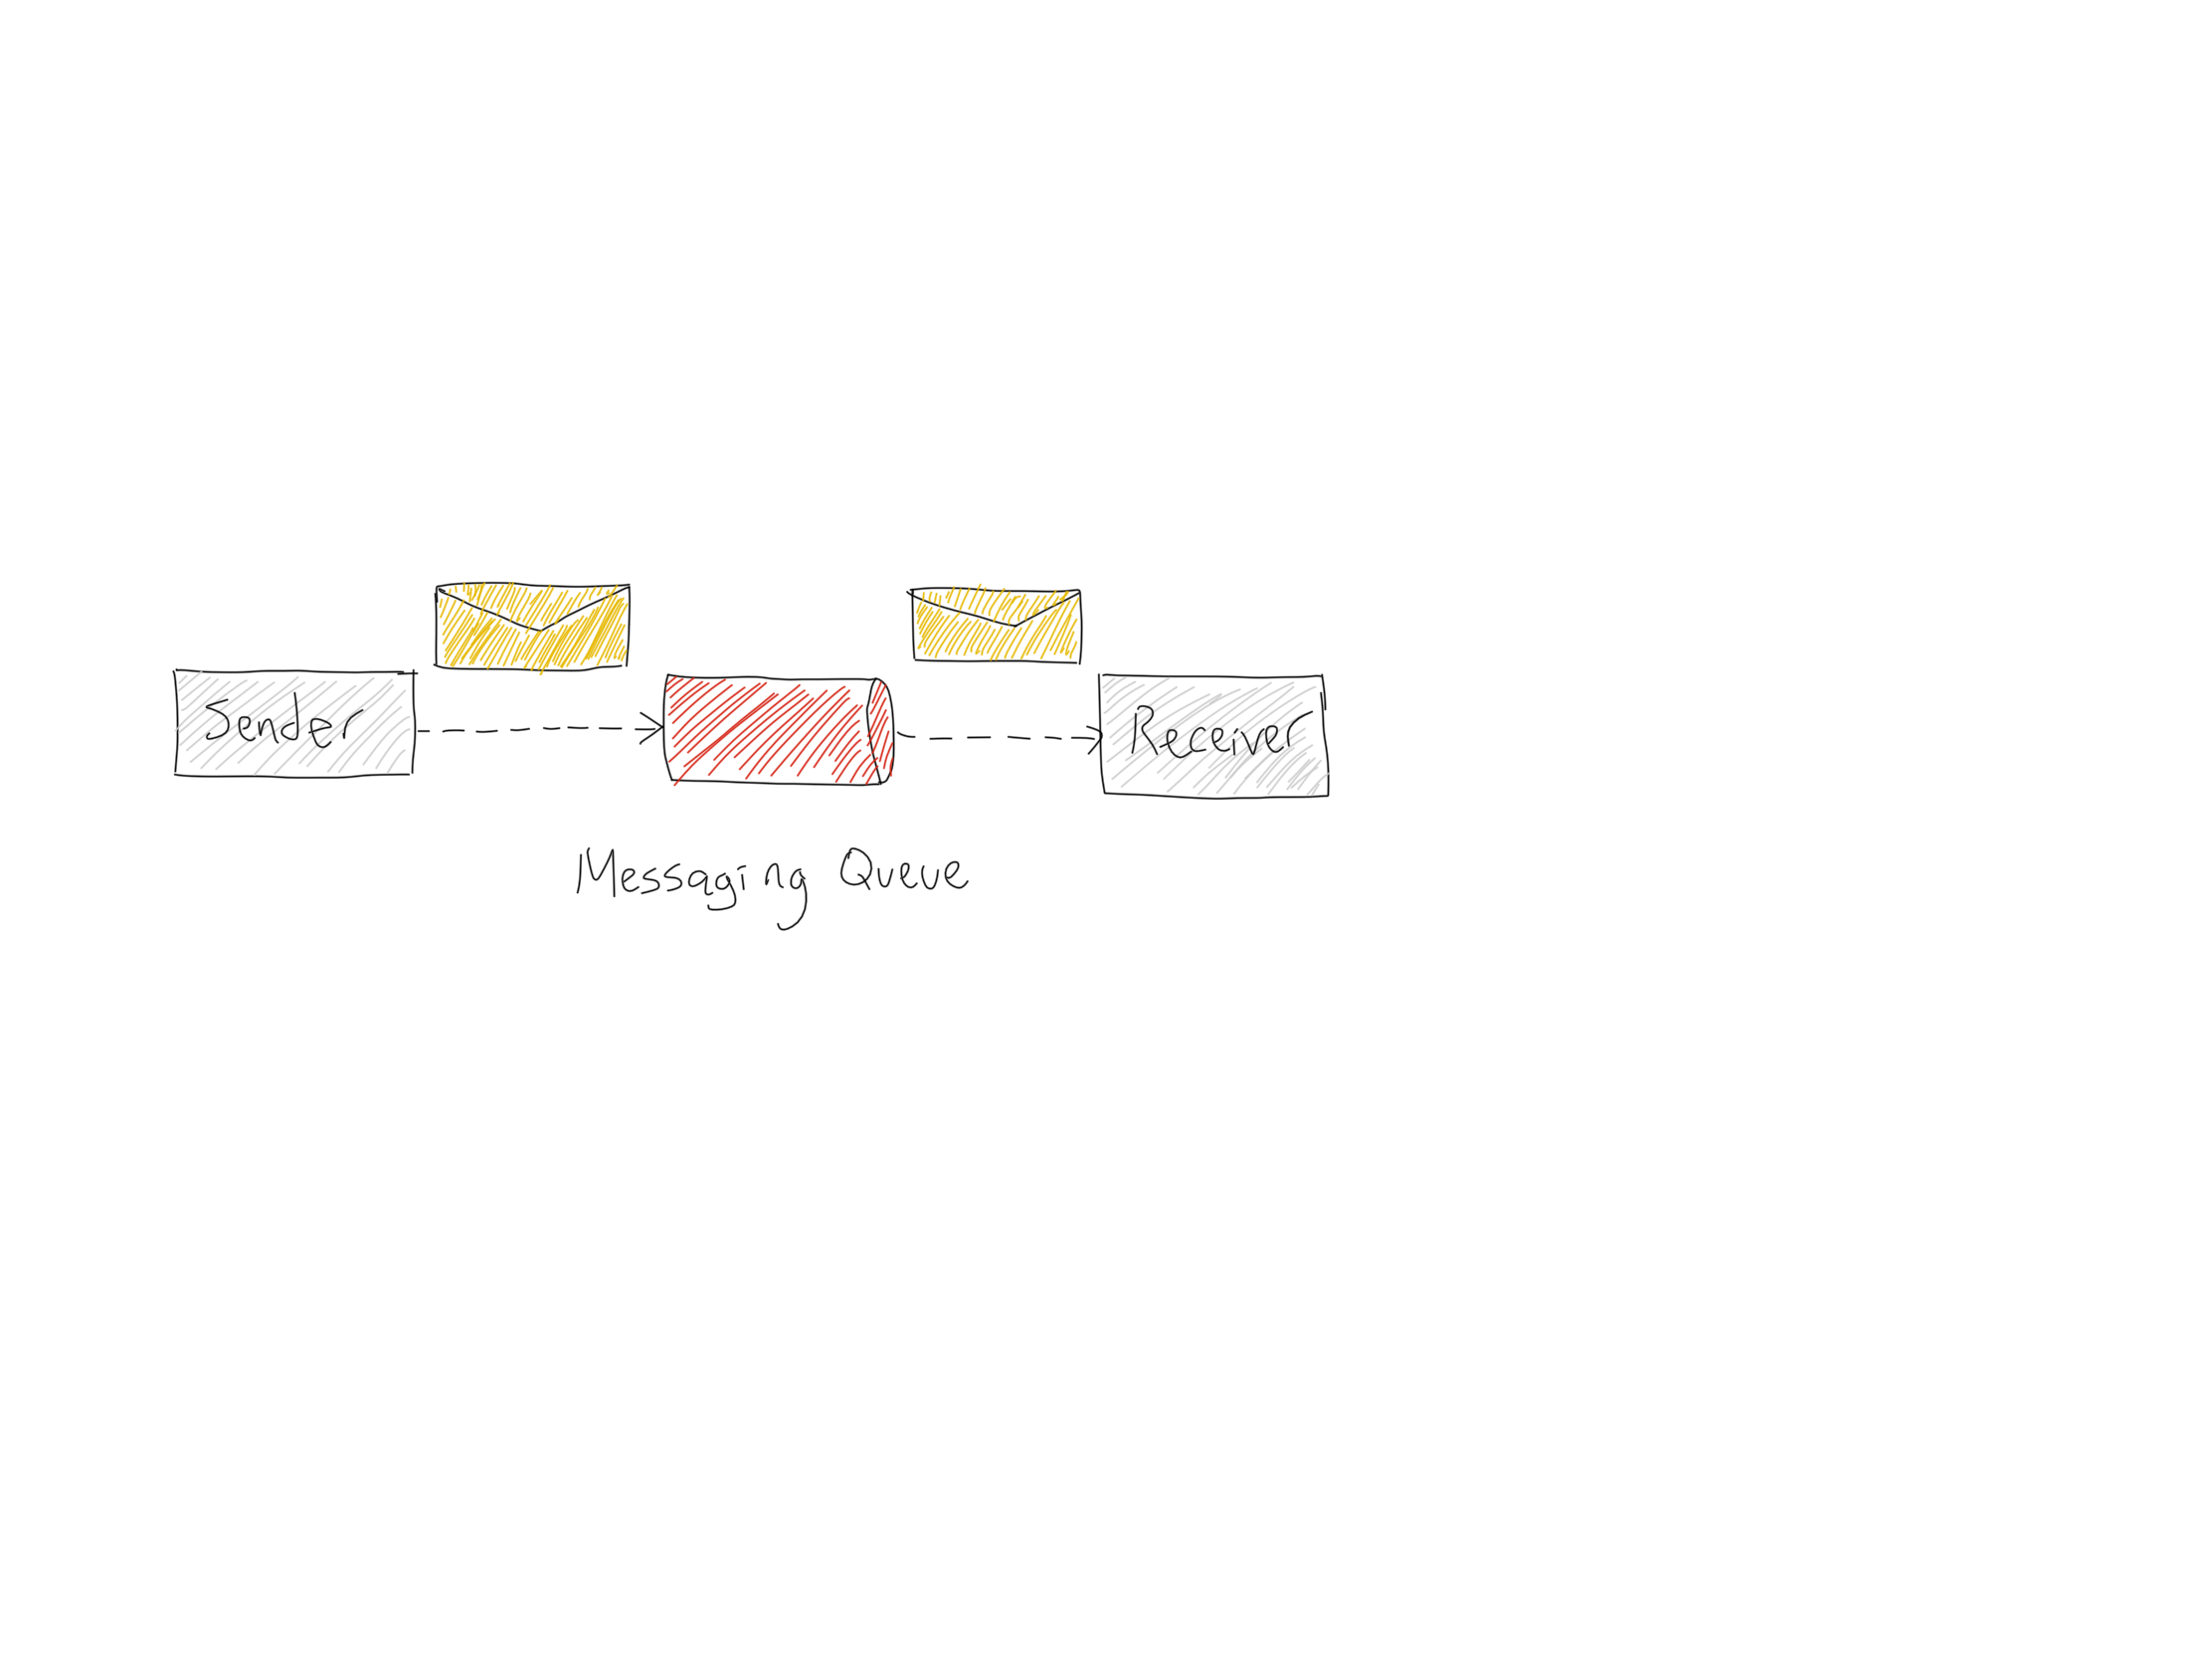 Sender
Receiver
Messaging Queue